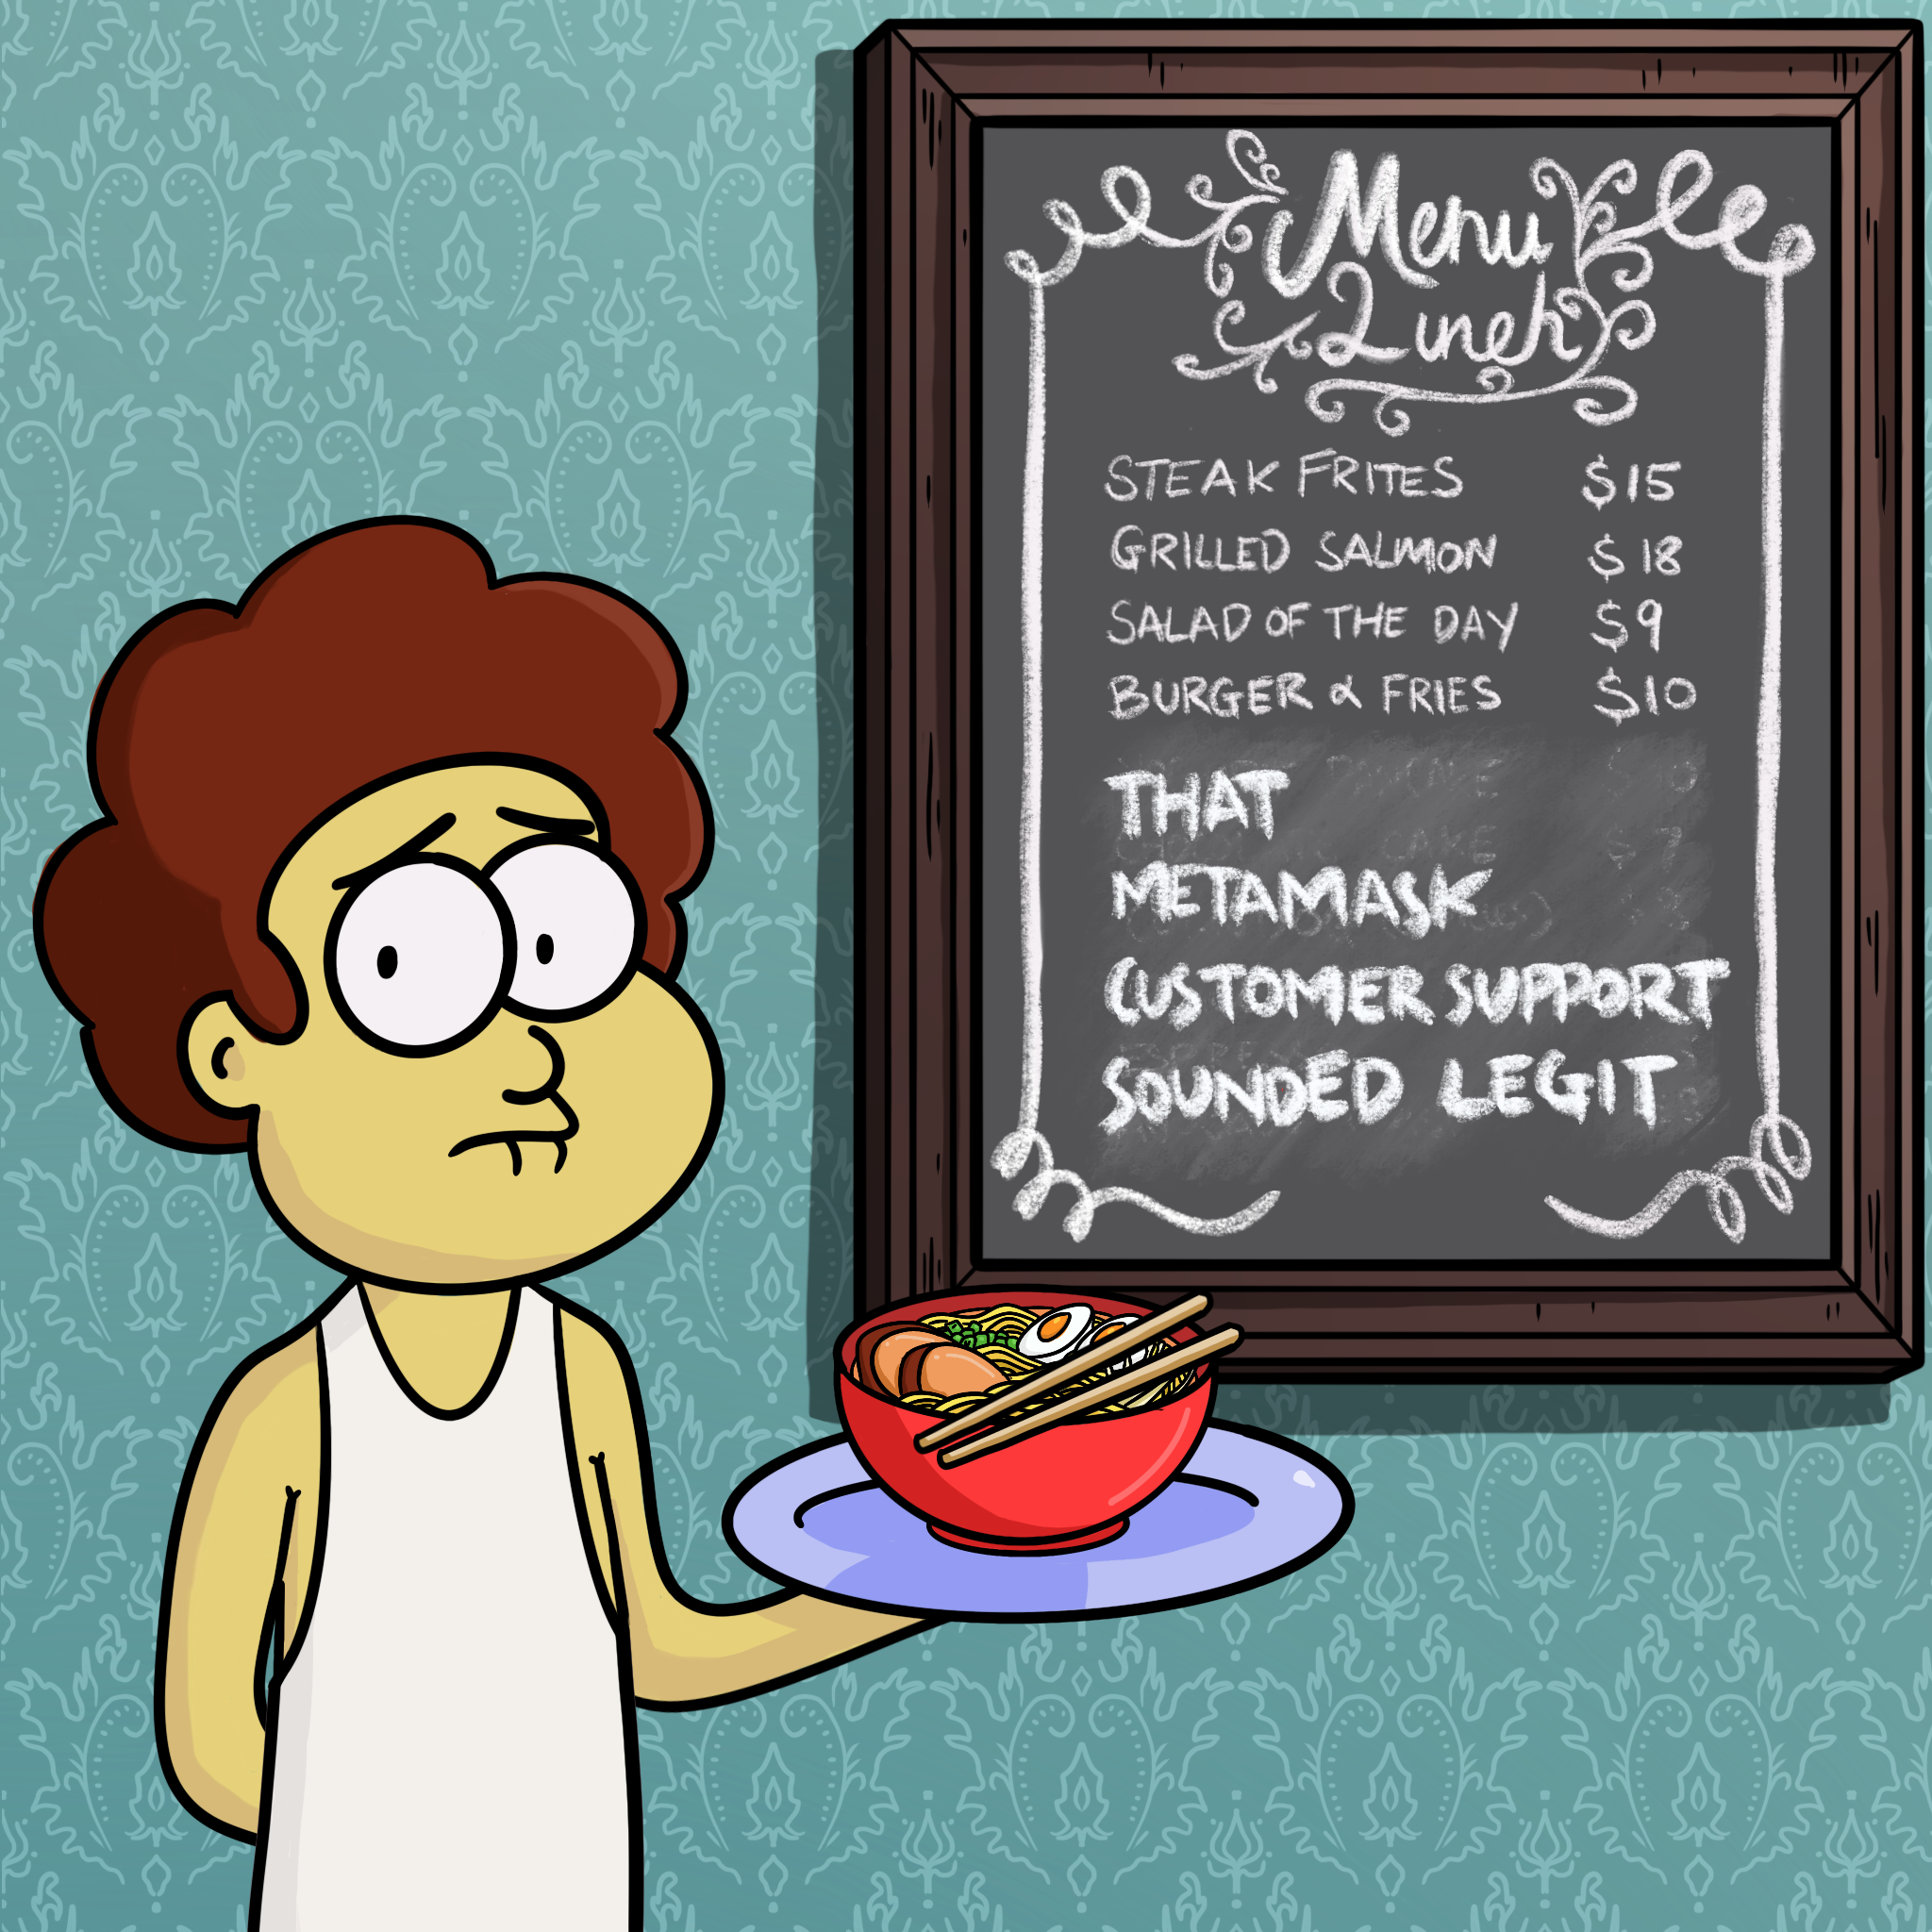 Menu
Lunch
STEAK FRITES $15
GRILLED SALMON $18
SALAD OF THE DAY $9
BURGER & FRIES $10
THAT
METAMASK
CUSTOMER SUPPORT
SOUNDED LEGIT